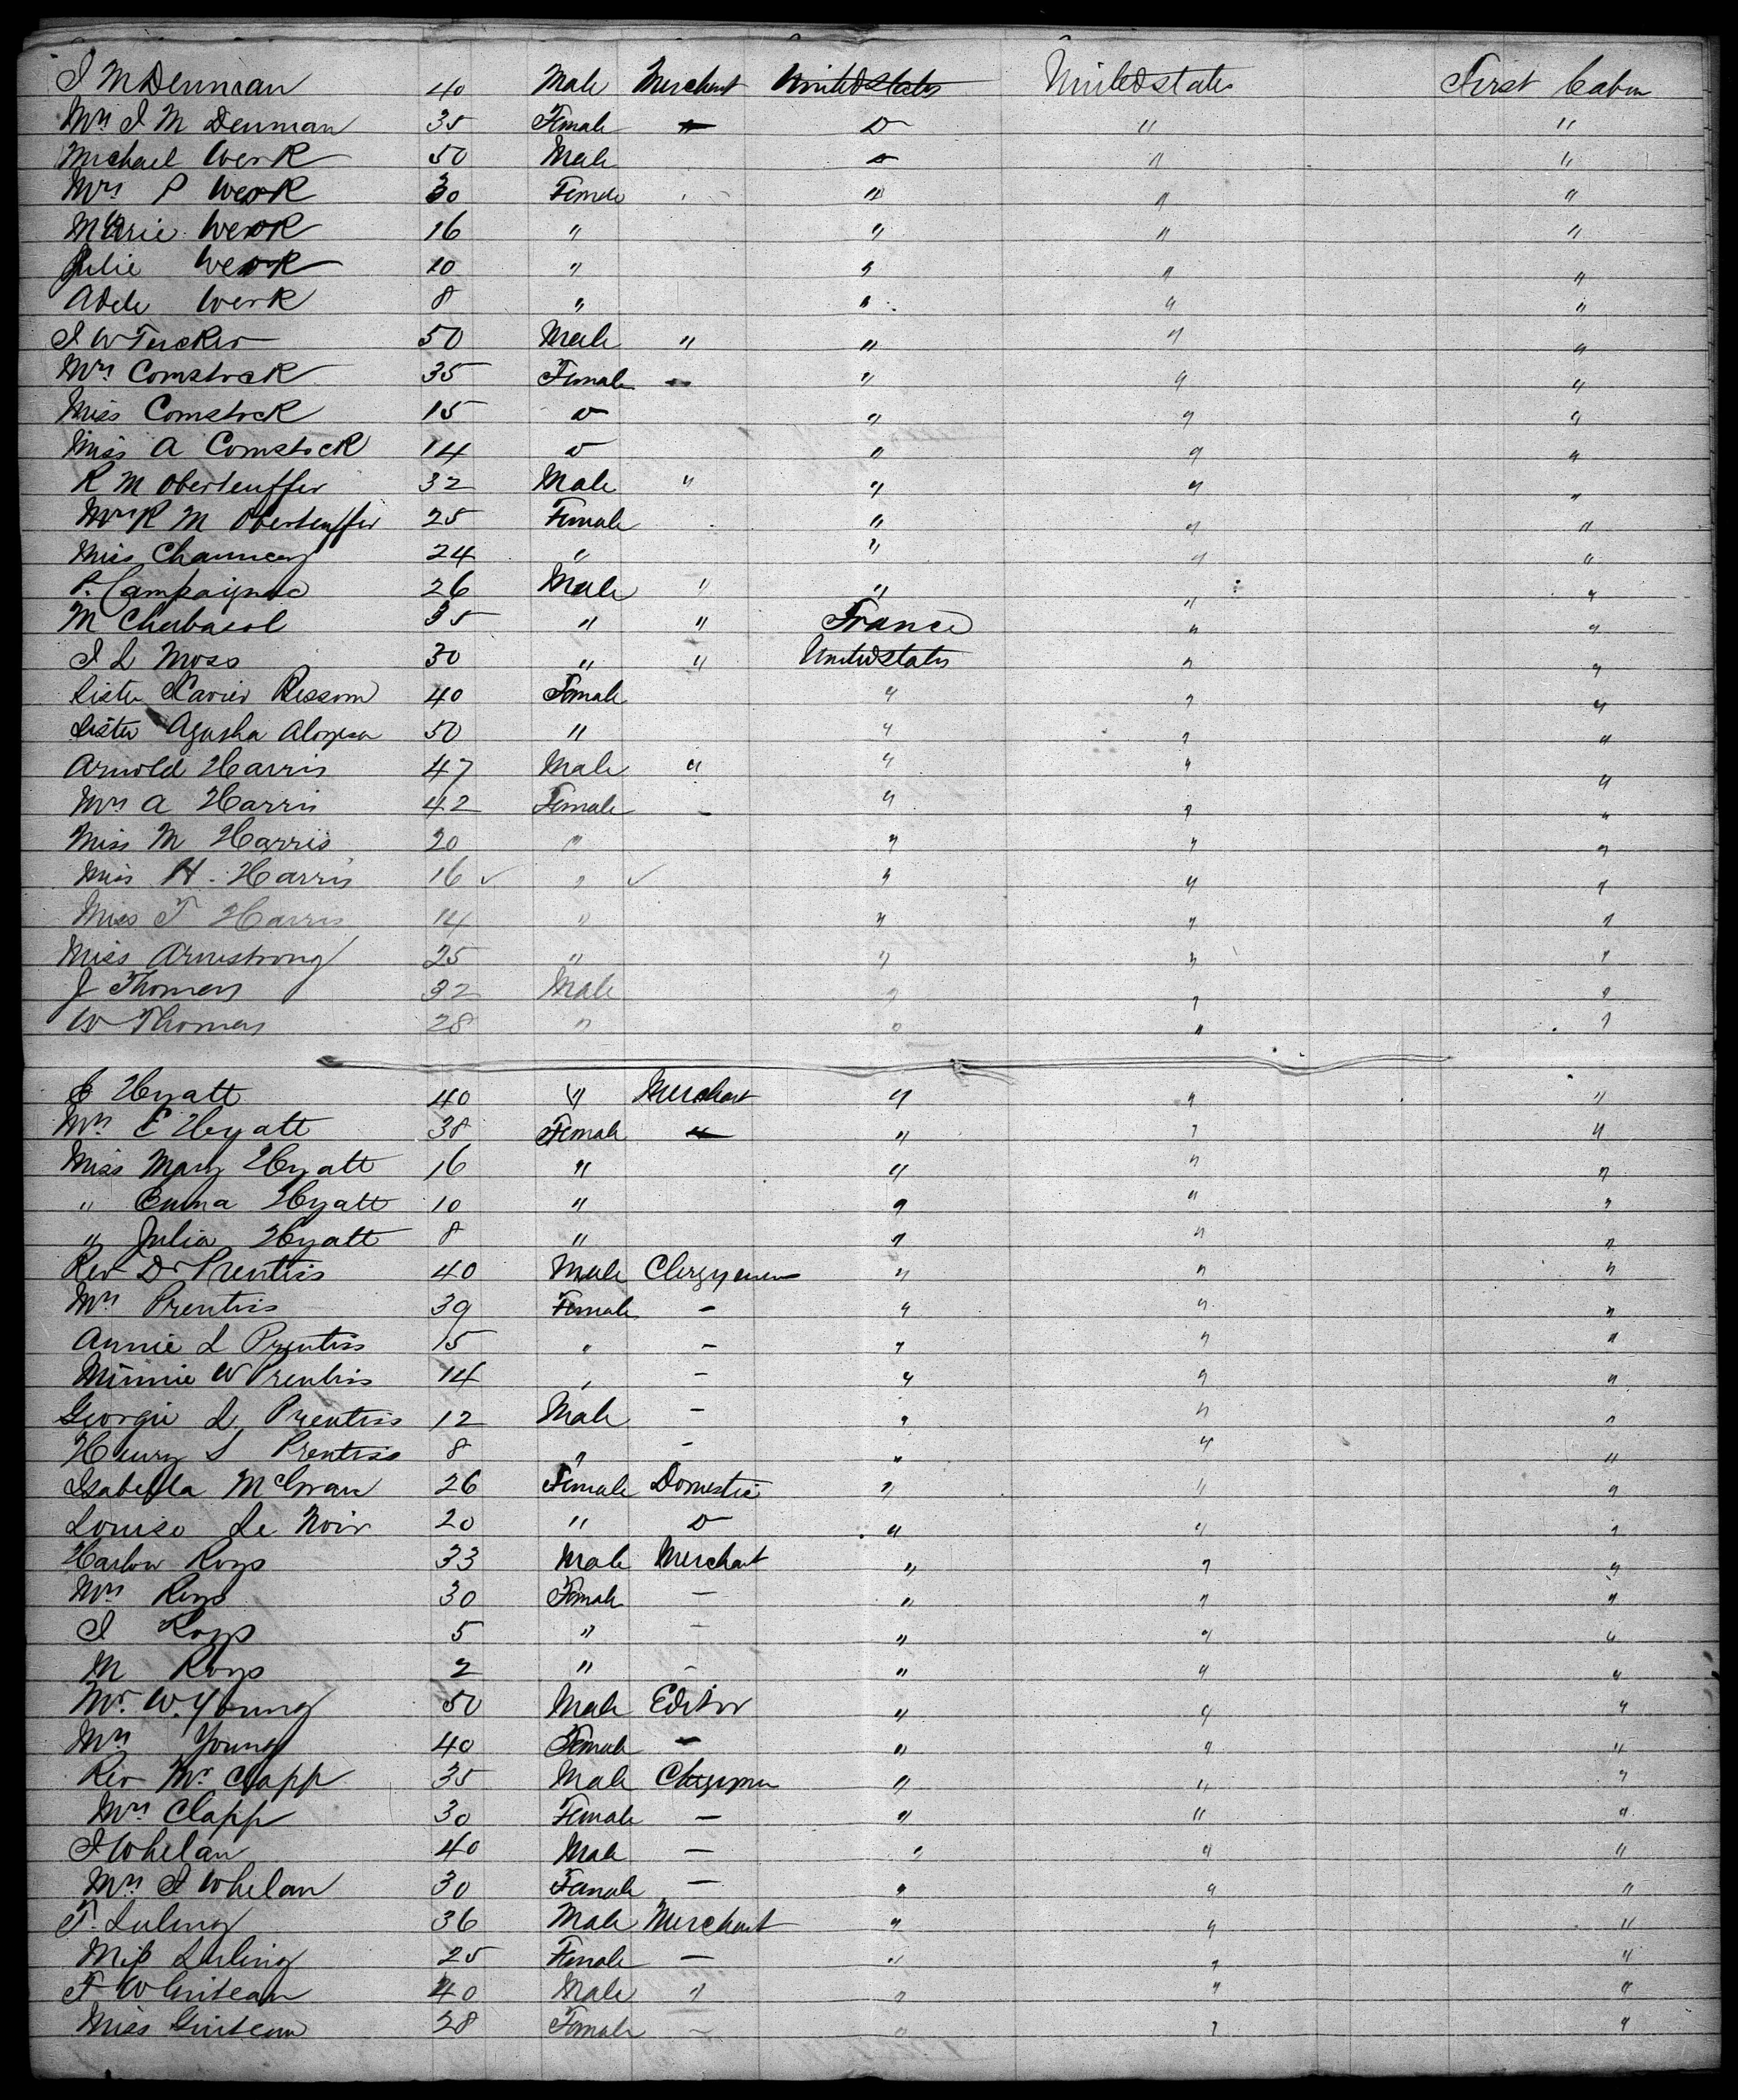 I M Denman 40 Male Merchant United States United states First Cabin
Mrs I M Denman 35 Female " Do " "
Michael Werk 50 Male Do " "
Mrs P Werk 30 Female " " "
Marie Werk 16 " " " "
Julie Werk 10 " " " "
Adele Werk 8 " " " "
I W Tucker 50 Male " " " "
Mrs Comstock 35 Female " " " "
Miss Comstock 15 Do " " "
Miss A Comstock 14 Do " " "
R M Oberteuffer 32 Male " " " "
Mrs R M Oberteuffer 25 Female " " "
Miss Chauncey 24 " " " "
P. Campaignac 26 Male " " " "
M 35 " " France " "
I L Moss 30 " " United states " "
Sister Xavier 40 Female " " "
Sister 50 " " " "
Arnold Harris 47 Male " " " "
Mrs A Harris 42 Female - " " "
Miss M Harris 20 " " " "
Miss H. Harris 16 ✓ " ✓ " " "
Miss T Harris 14 " " " "
Miss Armstrong 25 " " " "
J Thomas 32 Male " " "
W Thomas 28 " " " "
E Hyatt 40 " Merchant " " "
Mrs E Hyatt 38 Female " " " "
Miss Mary Hyatt 16 " " " "
" Emma Hyatt 10 " " " "
" Julia Hyatt 8 " " " "
Rev Dr Prentiss 40 Male Clergyman " " "
Mrs Prentiss 39 Female - " " "
Annie L Prentiss 15 " - " " "
Minnie W Prentiss 14 " - " " "
Georgie L Prentiss 12 Male - " " "
Henry S Prentiss 8 " - " " "
Isabella McGraw 26 Female Domestic " " "
Louise Le Noir 20 " Do " " "
Harlow Roys 33 Male Merchant " " "
Mrs Roys 30 Female - " " "
I Roys 5 " - " " "
M Roys 2 " - " " "
Mr. W. Young 50 Male Editor " " "
Mrs Young 40 Female - " " "
Rev Mr Clapp 35 Male Clergyman " " "
Mrs Clapp 30 Female - " " "
I Whelan 40 Male - " " "
Mrs I Whelan 30 Female - " " "
T. Luling 36 Male Merchant " " "
Miss Luling 25 Female - " " "
F W Guiteau 40 Male " " " "
Miss Guiteau 28 Female - " " "